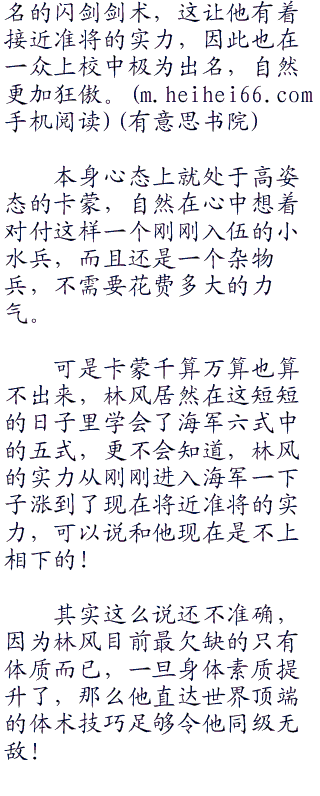 名的闪剑剑术，这让他有着
接近准将的实力，因此也在
一众上校中极为出名，自然
更加狂傲。(m.heihei66.com
手机阅读)(有意思书院)
本身心态上就处于高姿
态的卡蒙，自然在心中想着
对付这样一个刚刚入伍的小
水兵，而且还是一个杂物
兵，不需要花费多大的力
气。
可是卡蒙千算万算也算
不出来，林风居然在这短短
的日子里学会了海军六式中
的五式，更不会知道，林风
的实力从刚刚进入海军一下
子涨到了现在将近准将的实
力，可以说和他现在是不上
相下的！
其实这么说还不准确，
因为林风目前最欠缺的只有
体质而已，一旦身体素质提
升了，那么他直达世界顶端
的体术技巧足够令他同级无
敌！